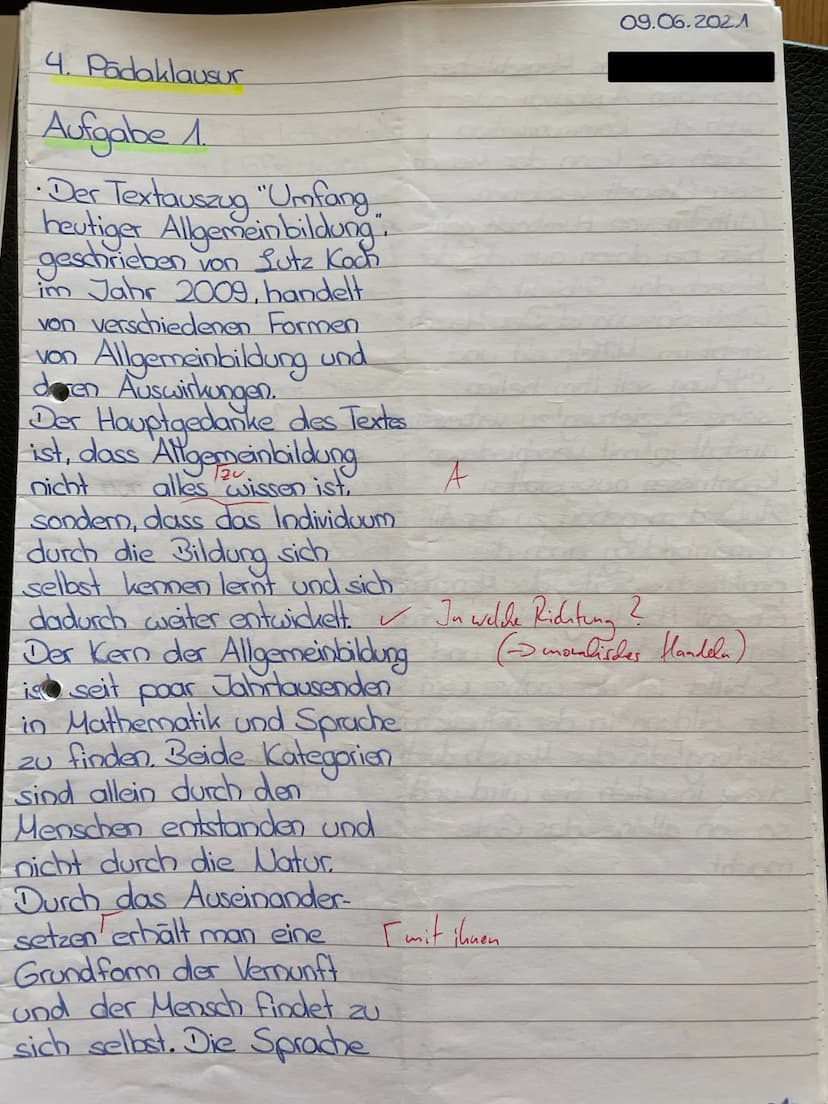 09.06.2021
4. Pädaklausur
Aufgabe 1.
· Der Textauszug "Umfang
heutiger Allgemeinbildung",
geschrieben von Lutz Koch
im Jahr 2009, handelt
von verschiedenen Formen
von Allgemeinbildung und
deren Auswirkungen.
Der Hauptgedanke des Textes
ist, dass Allgemeinbildung
nicht alles ⌈zu wissen ist, A
sondern, dass das Individuum
durch die Bildung sich
selbst kennen lernt und sich
dadurch weiter entwickelt. ✓ In welche Richtung?
Der Kern der Allgemeinbildung (→ moralisches Handeln)
ist seit paar Jahrtausenden
in Mathematik und Sprache
zu finden. Beide Kategorien
sind allein durch den
Menschen entstanden und
nicht durch die Natur.
Durch das Auseinander-
setzen ⌈ erhält man eine ⌈ mit ihnen
Grundform der Vernunft
und der Mensch findet zu
sich selbst. Die Sprache